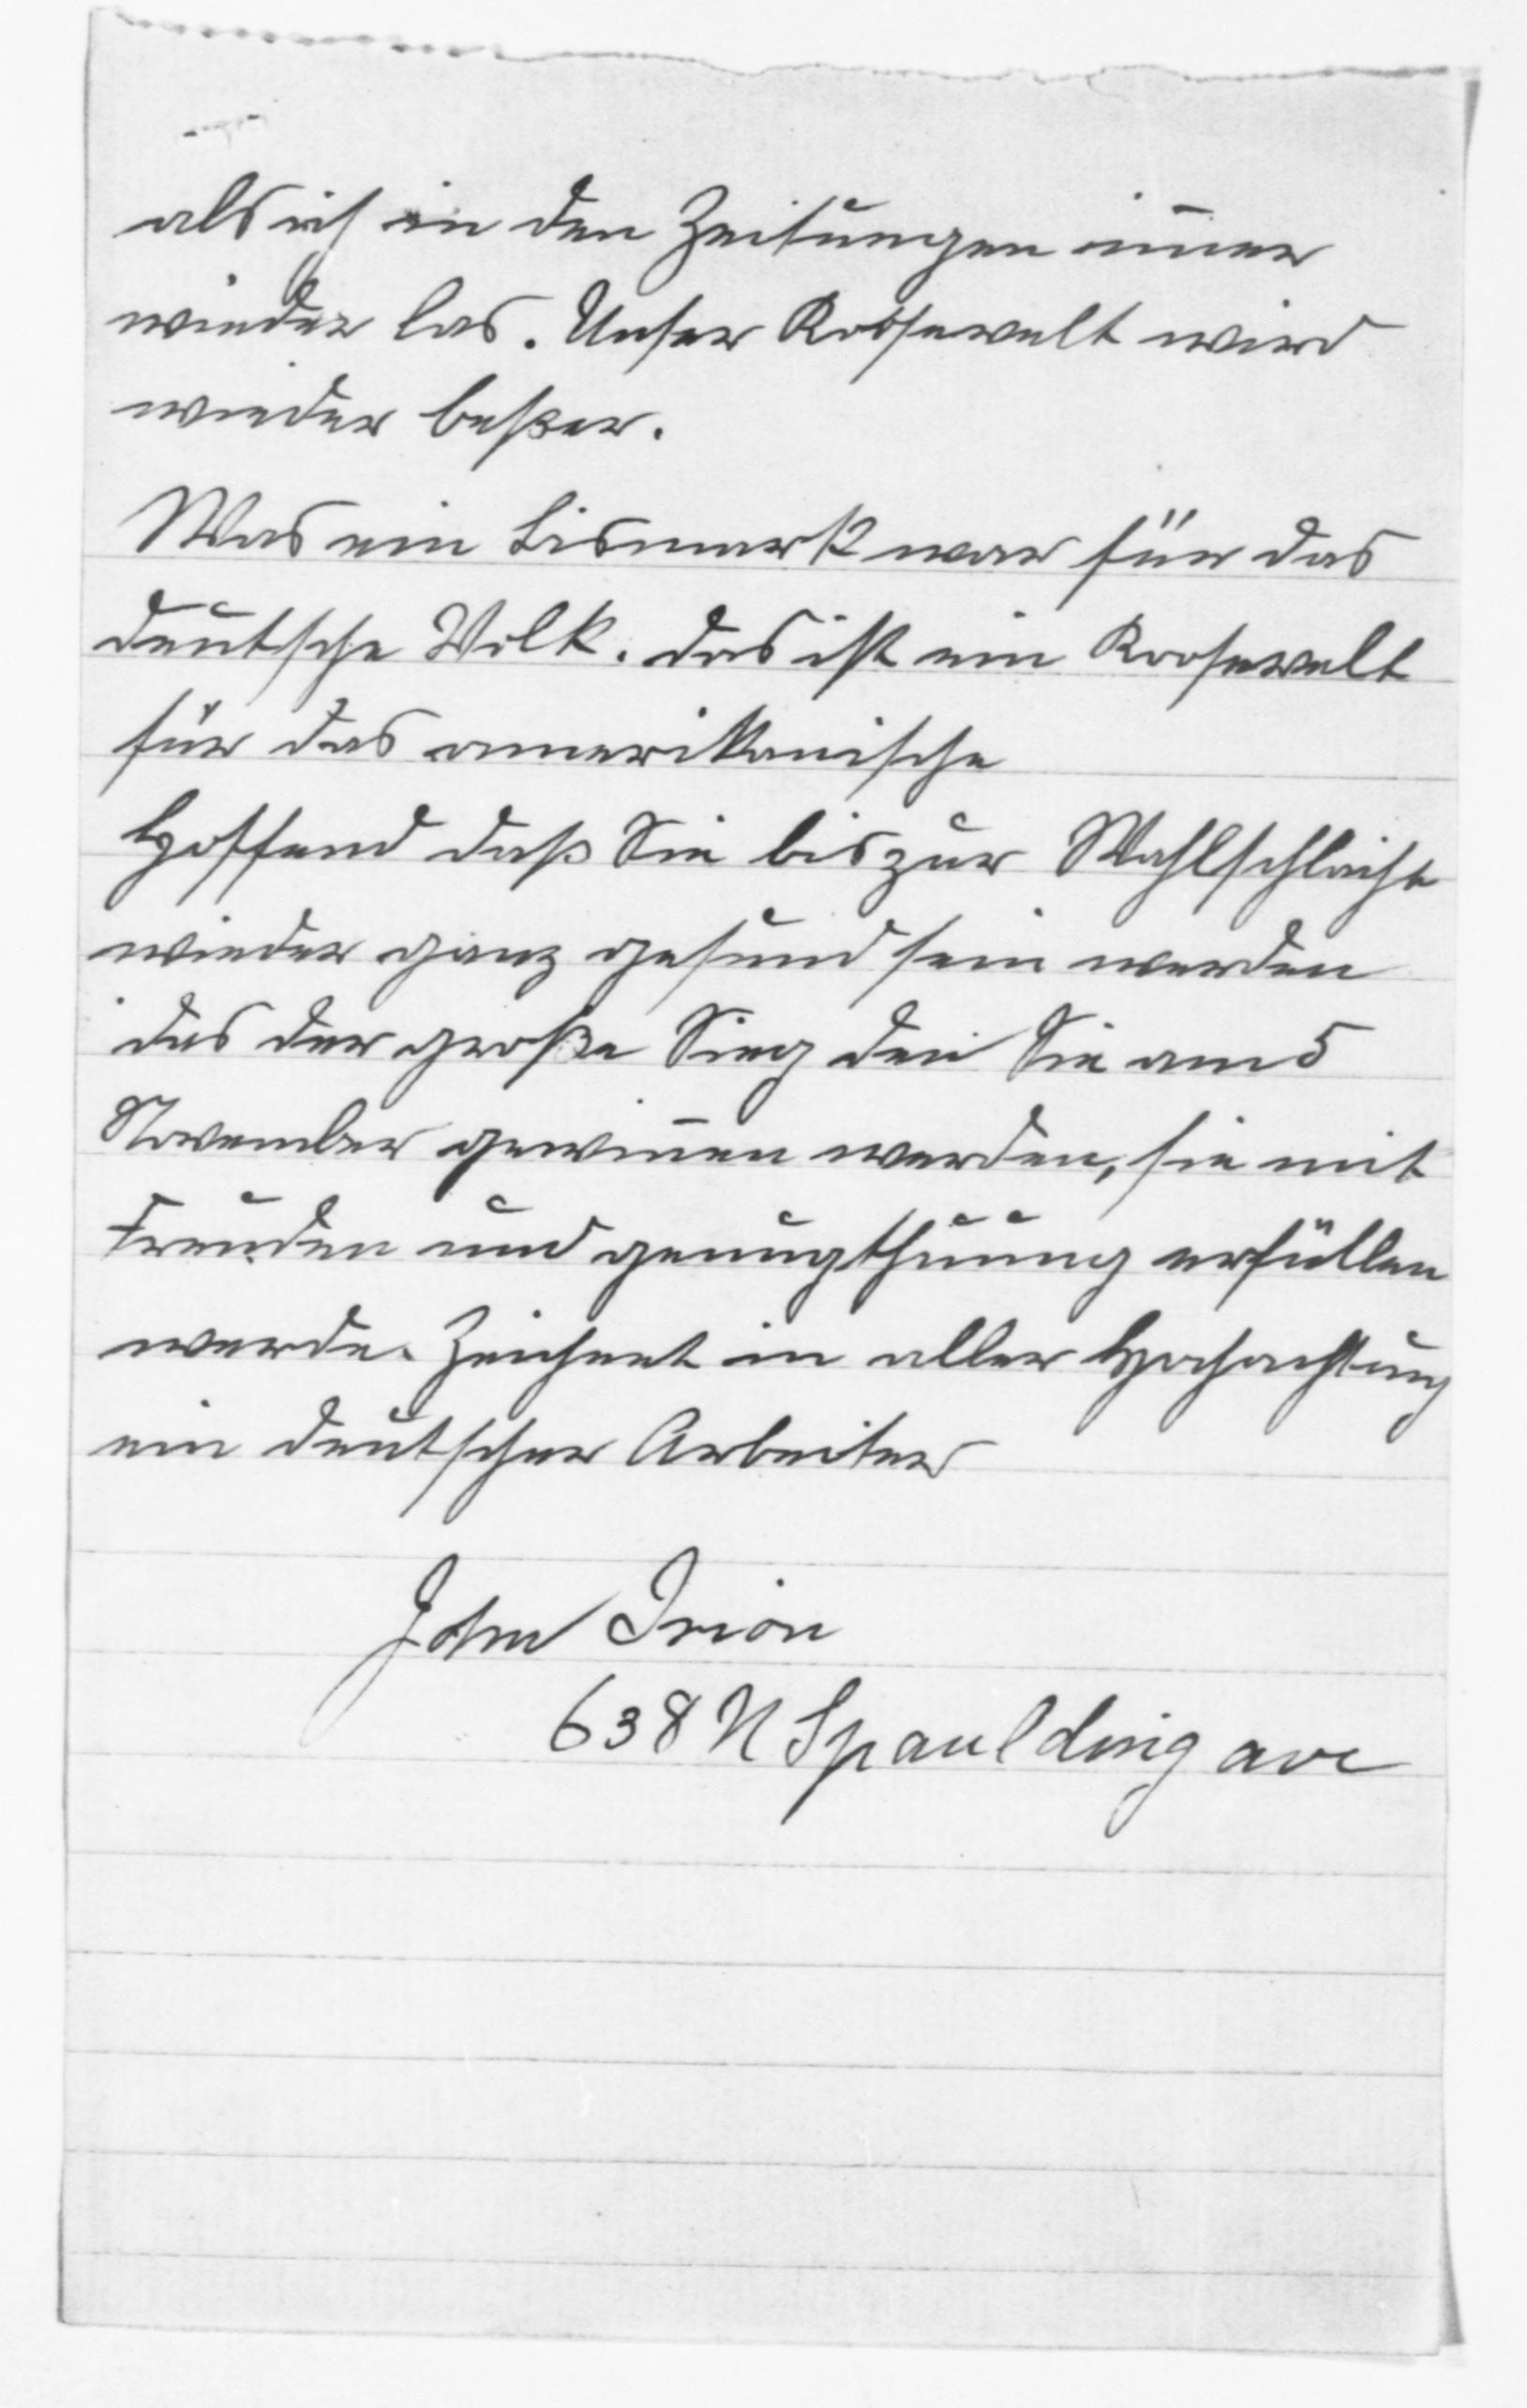 als ich in den Zeitungen im̄er
wieder las. Unser Roosewelt wird
wieder beßer.
Was ein Bismark war für das
deutsche Volk. das ist ein Roosewelt
für das amerikanische
Hoffend daß Sie bis zur Wahlschlacht
wieder ganz gesund sein werden
das der große Sieg den Sie am 5
November gewin̄en werden, sie mit
Freuden und genugthuung erfüllen
werde. Zeichnet in aller Hochachtung
ein deutscher Arbeiter
John Irion
638 N Spaulding ave